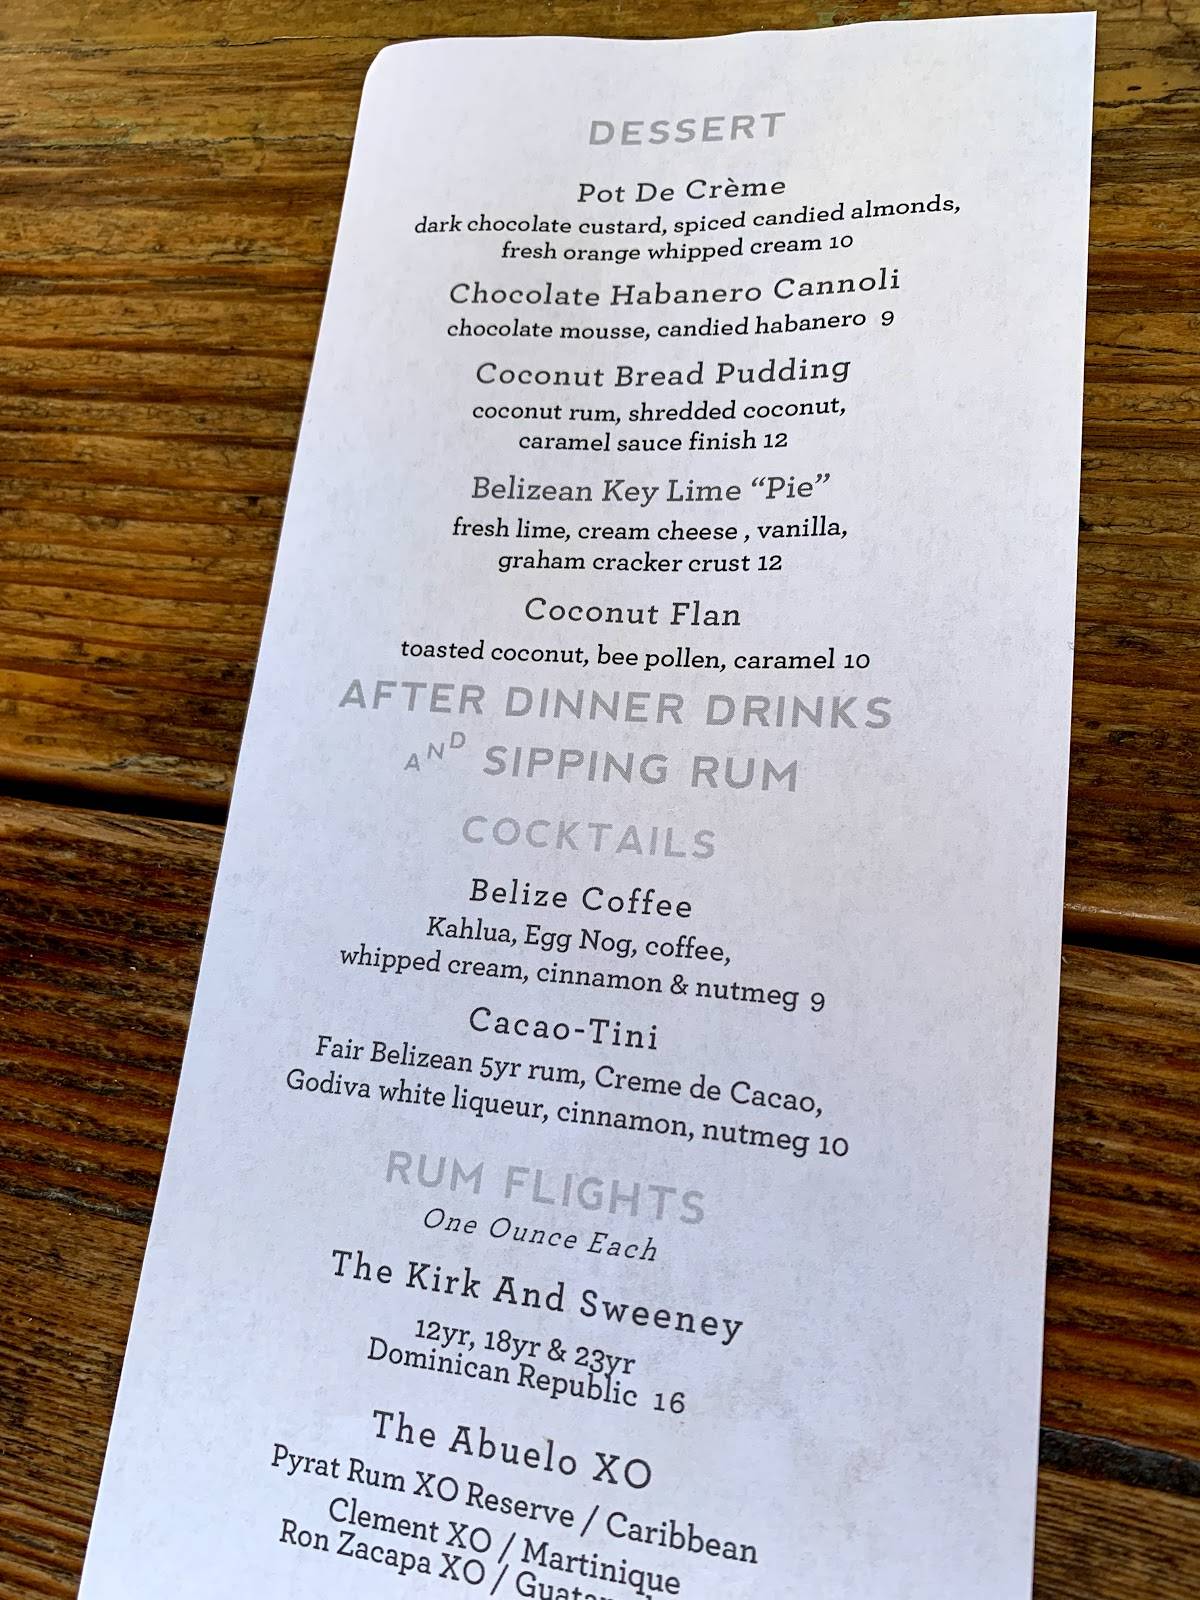 DESSERT
Pot De Crème
dark chocolate custard, spiced candied almonds,
fresh orange whipped cream 10
Chocolate Habanero Cannoli
chocolate mousse, candied habanero 9
Coconut Bread Pudding
coconut rum, shredded coconut,
caramel sauce finish 12
Belizean Key Lime “Pie”
fresh lime, cream cheese , vanilla,
graham cracker crust 12
Coconut Flan
toasted coconut, bee pollen, caramel 10
AFTER DINNER DRINKS
AND SIPPING RUM
COCKTAILS
Belize Coffee
Kahlua, Egg Nog, coffee,
whipped cream, cinnamon & nutmeg 9
Cacao-Tini
Fair Belizean 5yr rum, Creme de Cacao,
Godiva white liqueur, cinnamon, nutmeg 10
RUM FLIGHTS
One Ounce Each
The Kirk And Sweeney
12yr, 18yr & 23yr
Dominican Republic 16
The Abuelo XO
Pyrat Rum XO Reserve / Caribbean
Clement XO / Martinique
Ron Zacapa XO /